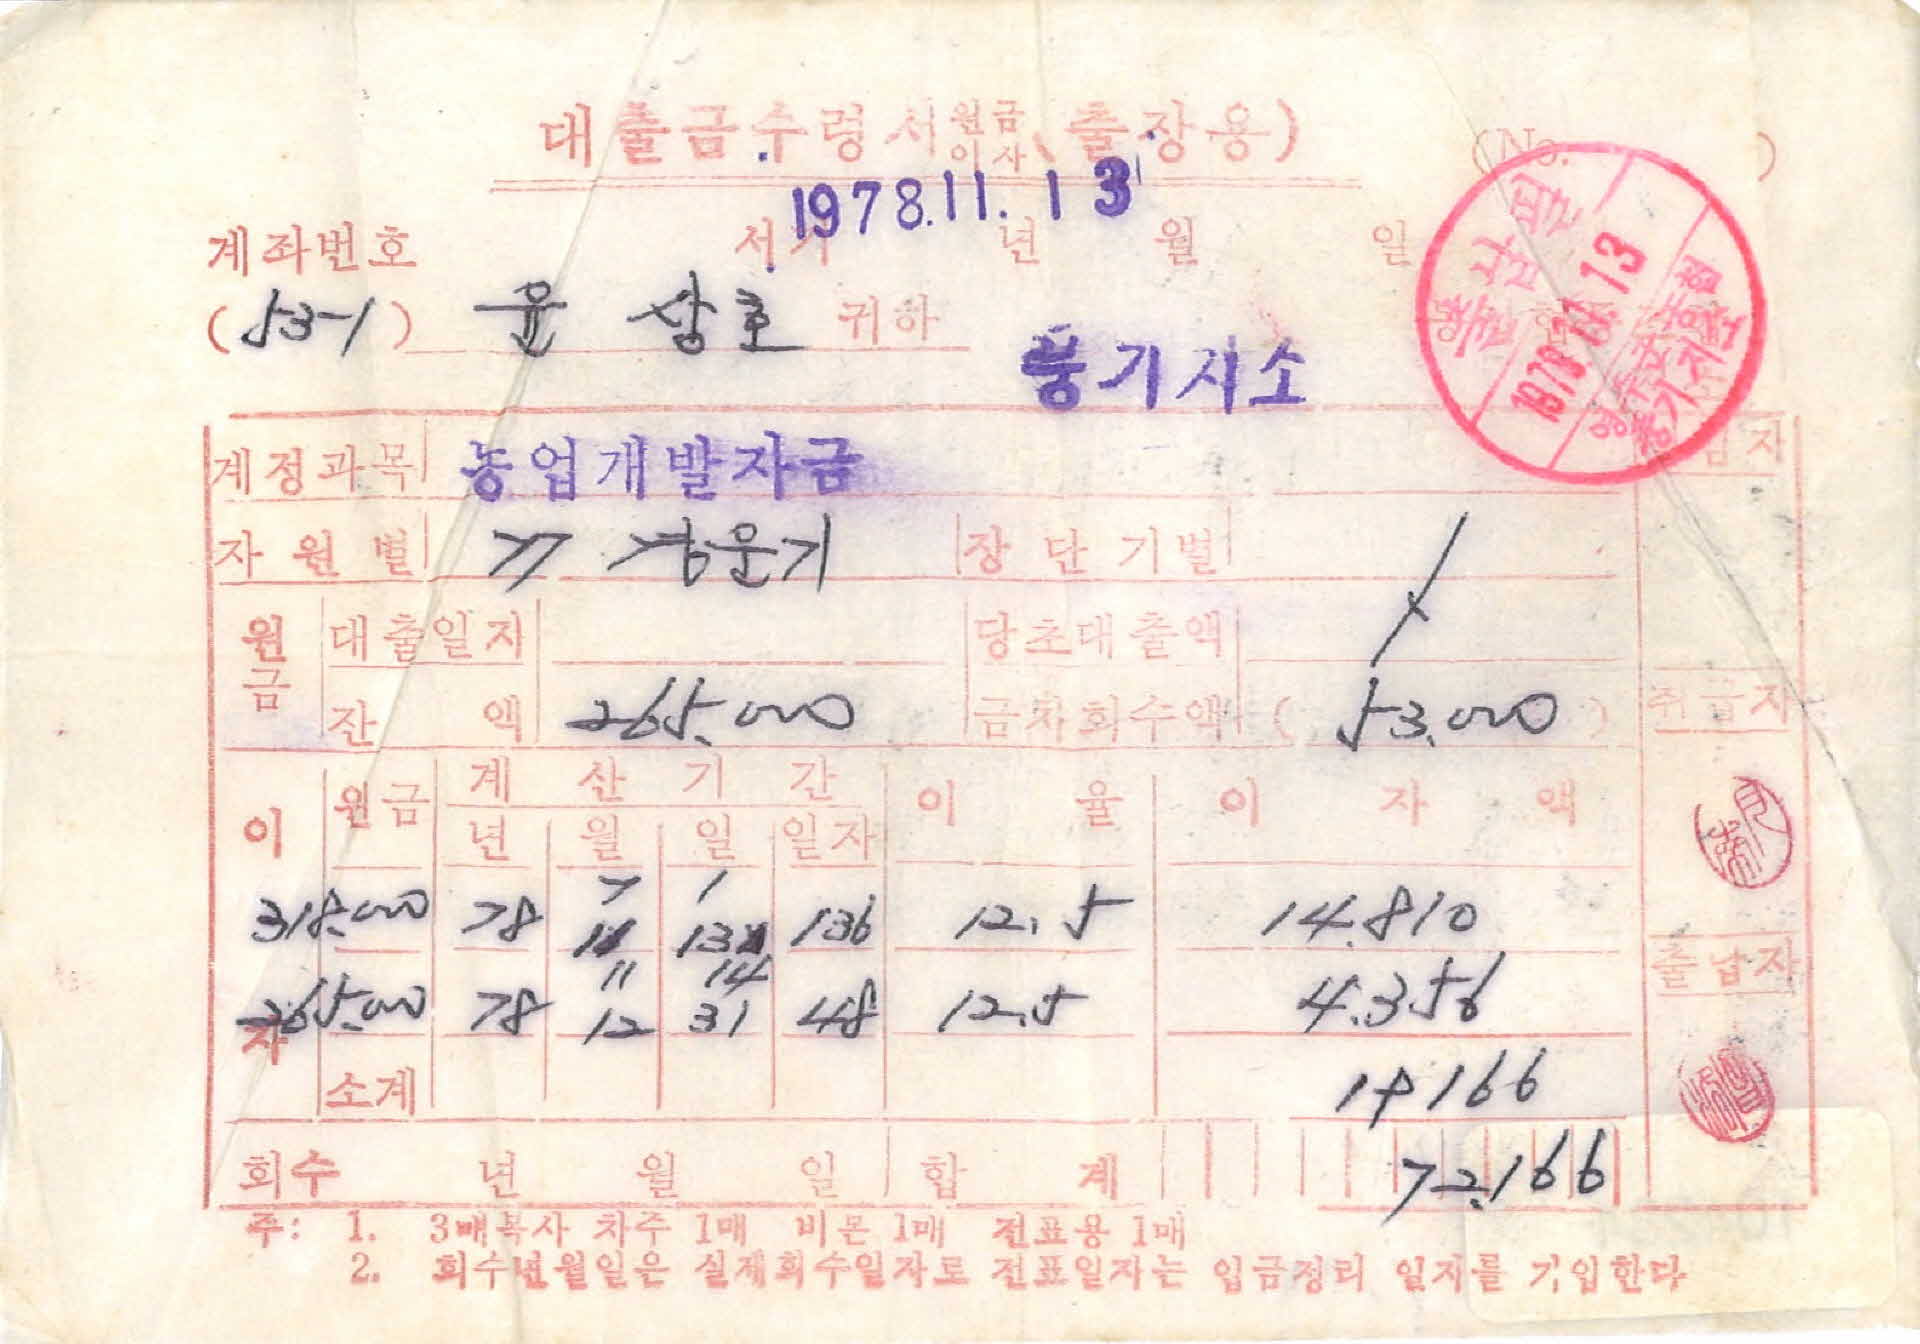 대출금수령서 원금 이자 (출장용)
(No. )
1978.11.13
계좌번호 서기 년 월 일
(53-1) 윤상호 귀하
풍기지소
출납필
1978 11. 13
영주군농협
풍기지소
계정과목 농업개발자금
자원별 77 경운기 장단기별
원금 대출일자 당초대출액
잔액 265.000 금차회수액 (53.000) 취급자
이자 원금 계산기간 이율 이자액
년 월 일 일자
7 1
318.000 78 11 13 136 12.5 14.810
11 14 출납자
265.000 78 12 31 48 12.5 4.356
소계 19166
회수 년 월 일 합계 72.166
주: 1. 3매복사 차주 1매 비몬 1매 전표용 1매
2. 회수년월일은 실제회수일자로 전표일자는 입금정리 일자를 기입한다